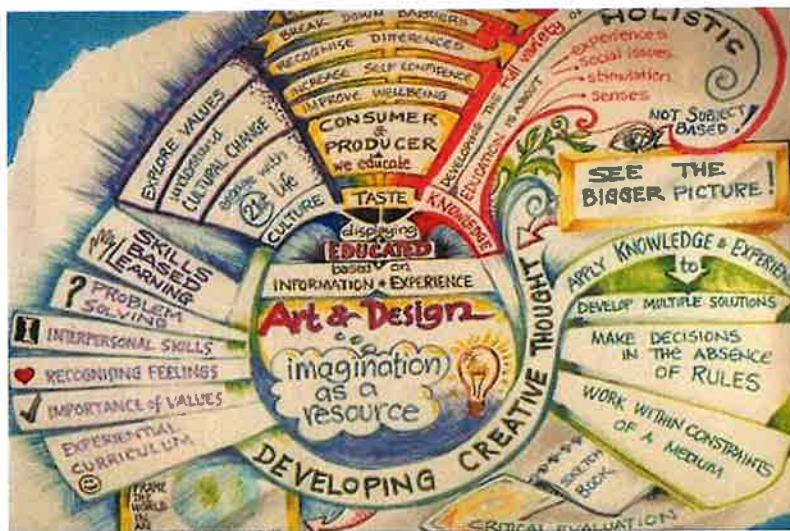 BREAK DOWN BARRIERS
RECOGNISE DIFFERENCES
INCREASE SELF CONFIDENCE
IMPROVE WELLBEING
CONSUMER
&
PRODUCER
we educate
TASTE
displaying
EDUCATED
based on
INFORMATION + EXPERIENCE
Art & Design
imagination
as a
resource
DEVELOPING CREATIVE THOUGHT
EXPLORE VALUES
understand
CULTURAL CHANGE
engage with
21st C life
CULTURE
SKILLS
BASED
LEARNING
? PROBLEM
SOLVING
INTERPERSONAL SKILLS
RECOGNISING FEELINGS
IMPORTANCE of VALUES
EXPERIENTIAL
CURRICULUM
FRAME
THE
WORLD
IN AN
KNOWLEDGE
DEVELOPING THE full variety OF
EDUCATION IS ABOUT
HOLISTIC
experiences
social issues
stimulation
senses
NOT SUBJECT
BASED!
SEE THE
BIGGER PICTURE!
APPLY KNOWLEDGE & EXPERIENCE
to
DEVELOP MULTIPLE SOLUTIONS
MAKE DECISIONS
IN THE ABSENCE
OF RULES
WORK WITHIN CONSTRAINTS
OF A MEDIUM
SKETCH
BOOK
CRITICAL EVALUATION